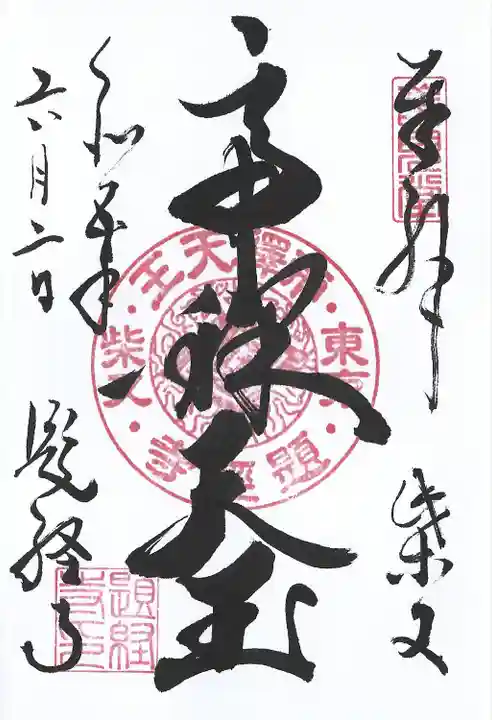 奉拝
柴又
帝釈天王
令和五年
六月二日
題経寺
帝釋天王
東京
柴又
題經寺